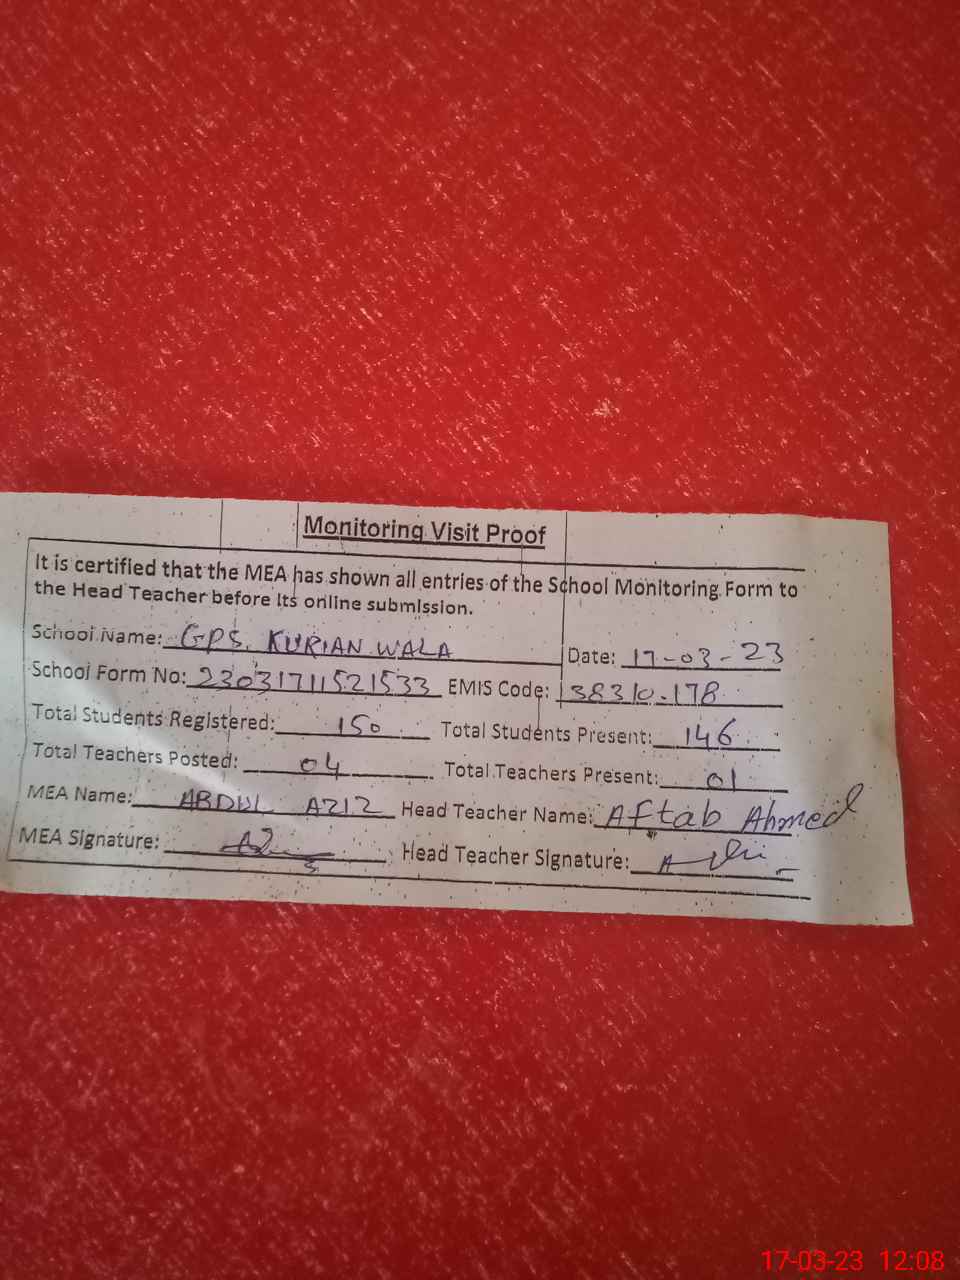 Monitoring Visit Proof
It is certified that the MEA has shown all entries of the School Monitoring Form to
the Head Teacher before its online submission.
School Name: GPS. KURIAN WALA Date: 17-03-23
School Form No: 23031711521533 EMIS Code: 38310-178
Total Students Registered: 150 Total Students Present: 146
Total Teachers Posted: 04 Total Teachers Present: 01
MEA Name: ABDUL AZIZ Head Teacher Name: Aftab Ahmed
MEA Signature: Head Teacher Signature:
17-03-23 12:08